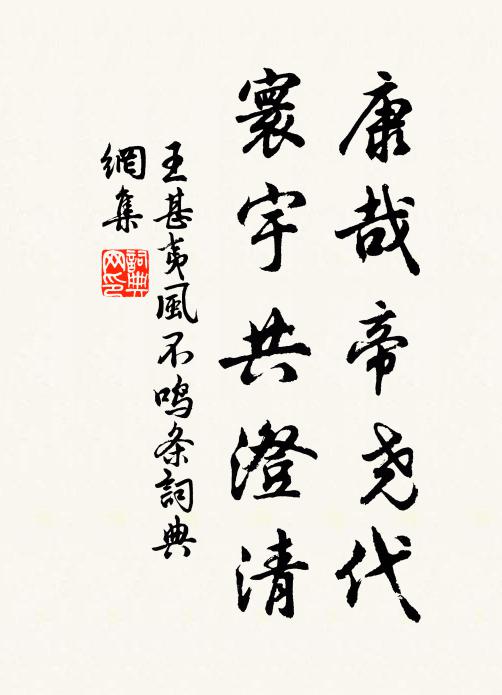 康哉帝尧代
寰宇共澄清
王甚夷風不鸣条詞典
網集
詞典
网印